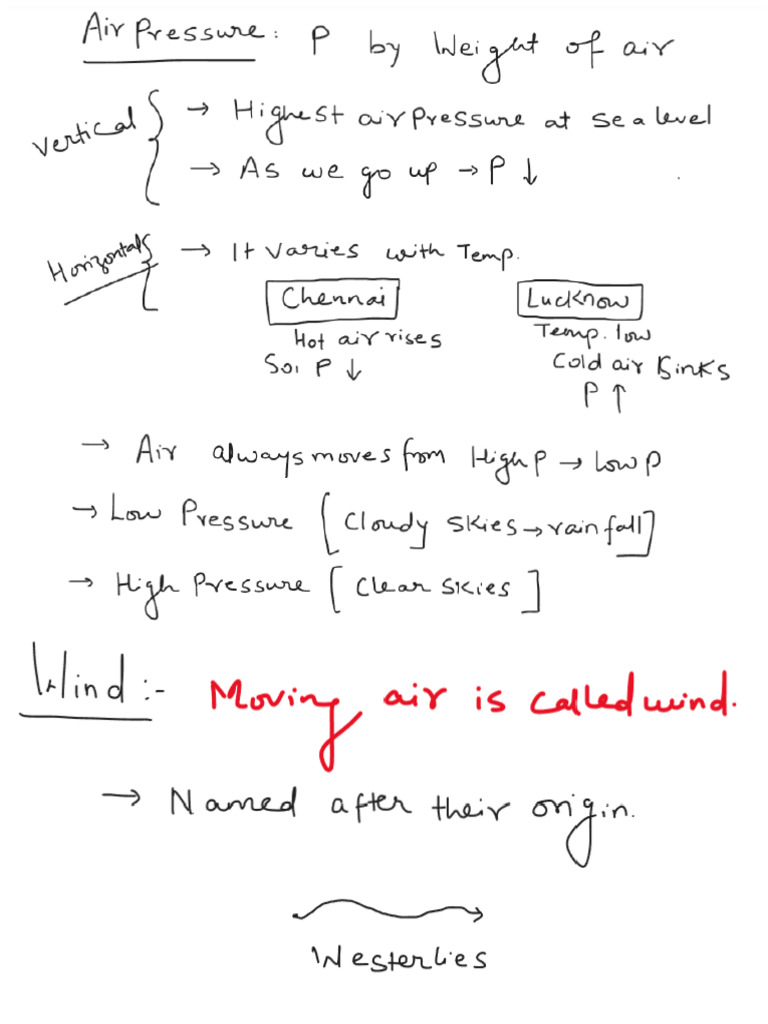 Air Pressure: P by Weight of air
Vertical { → Highest air pressure at sea level
→ As we go up → P ↓
Horizontal { → It varies with Temp.
Chennai Lucknow
Hot air rises Temp. low
So, P ↓ Cold air sinks
P ↑
→ Air always moves from High P → Low P
→ Low Pressure [Cloudy skies → rainfall]
→ High Pressure [Clear skies]
Wind :- Moving air is called wind.
→ Named after their origin.
Westerlies